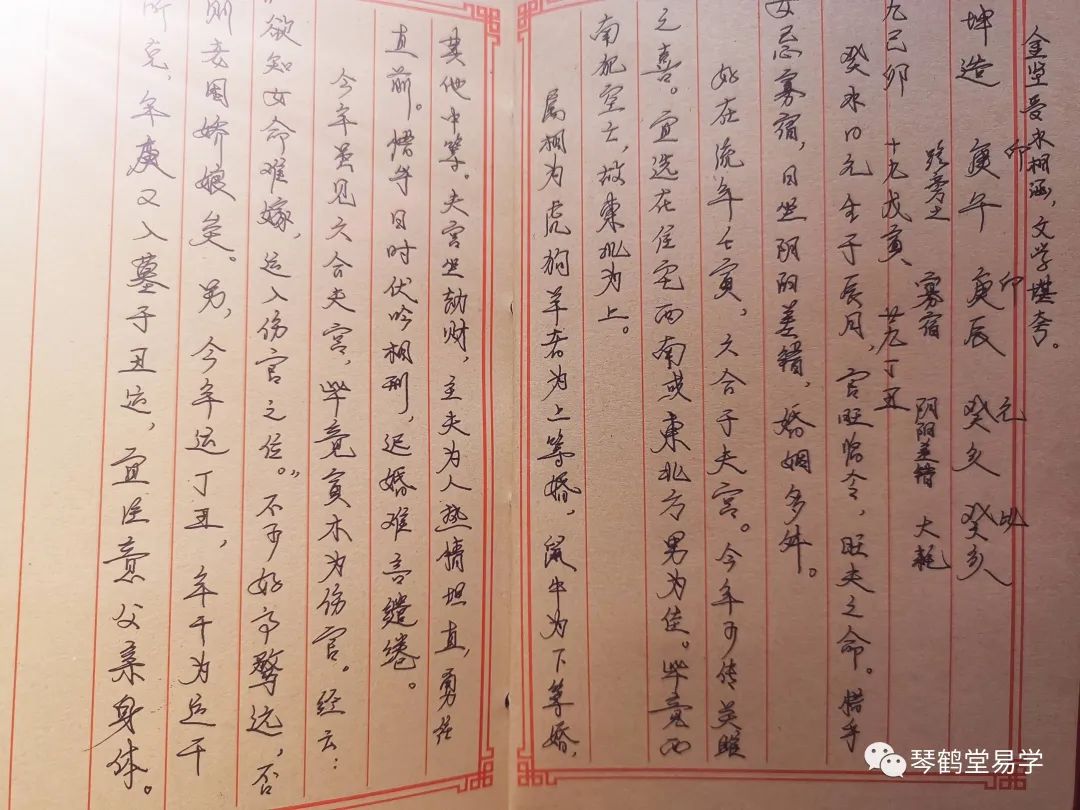 金坚受水相涵，文学堪夸。
坤造 庚午 庚辰 癸亥 癸亥
印 印 元 比
路旁土 寡宿 阴阳差错 大耗
九己卯 十九戊寅 廿九丁丑
癸水日元生于辰月，官旺临令，旺夫之命。惜乎
女忌寡宿，日坐阴阳差错，婚姻多舛。
好在流年壬寅，六合于夫宫。今年可传关雎
之喜。宜选在住宅西南或东北方男为佳。毕竟西
南犯空亡，故东北为上。
属相为虎狗羊者为上等婚，鼠牛为下等婚，
其他中等。夫宫坐劫财，主夫为人热情坦直，勇往
直前。惜乎日时伏吟相刑，迟婚难言缱绻。
今年虽见六合夫宫，毕竟寅木为伤官。经云：
“欲知女命难嫁，运入伤官之位。”不可好高骛远，否
则妾围娇娘矣。另，今年运丁丑，年干为运干
所克，年庚又入墓于丑运，宜注意父亲身体。
琴鹤堂易学